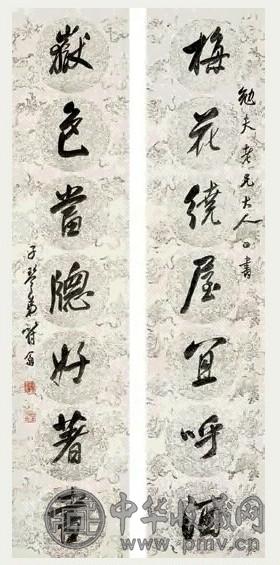 勉夫老兄大人
梅花繞屋宜呼酒
嶽色當牕好著書
子琴弟
中华收藏网
www.pmv.cn